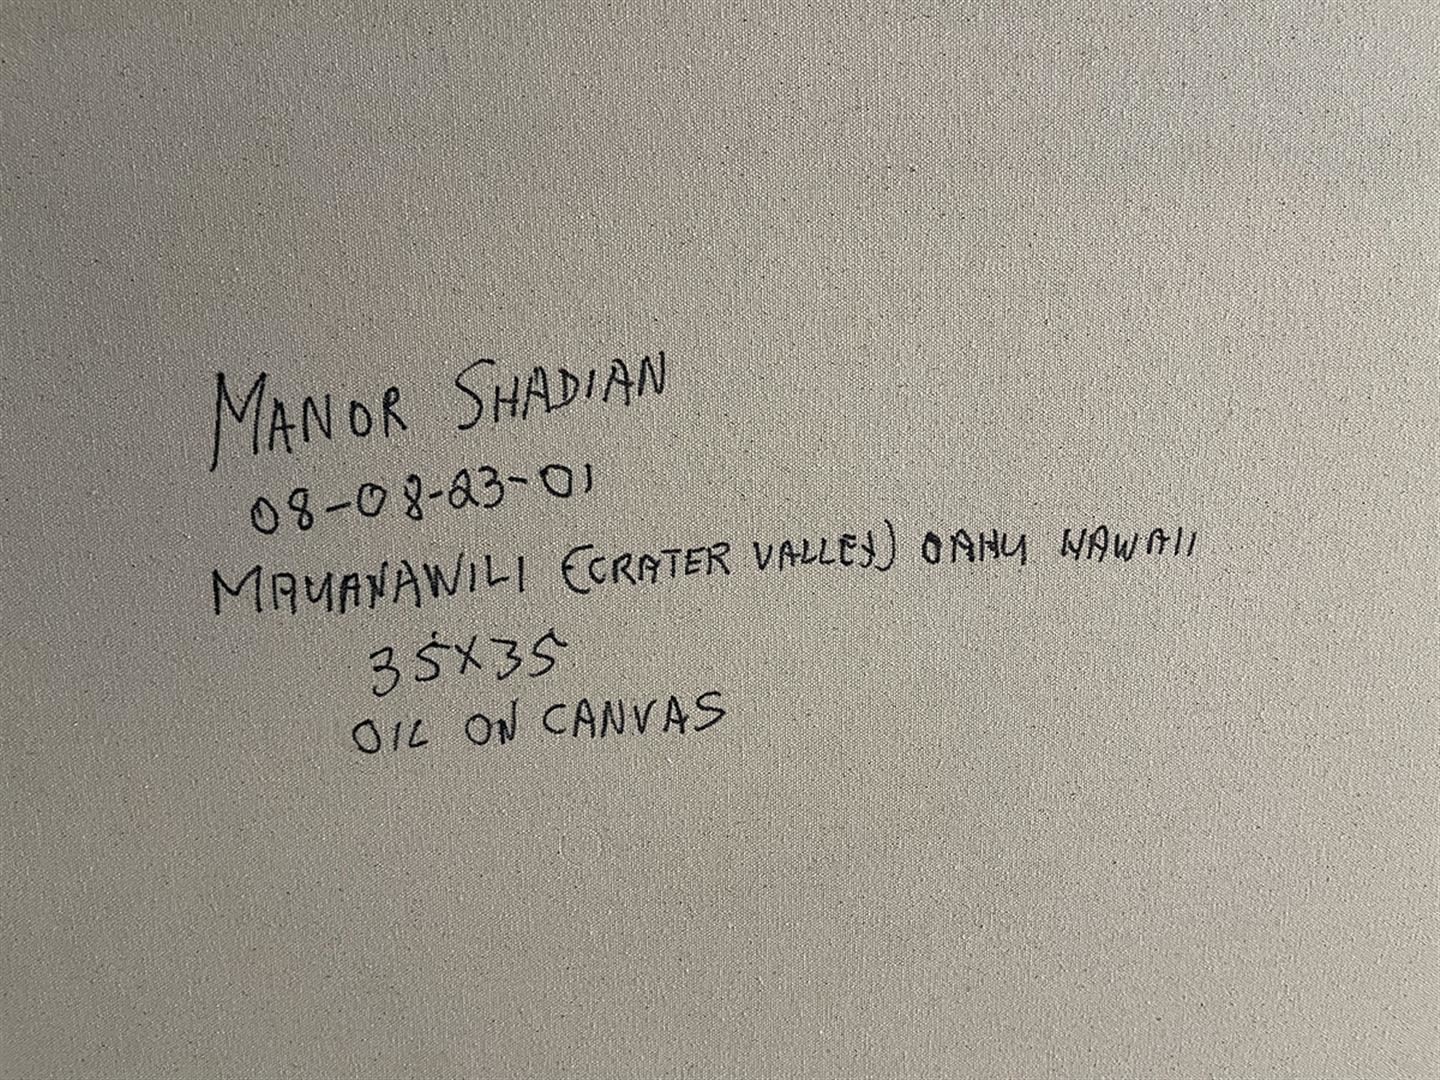 MANOR SHADIAN
08-08-23-01
MAUANAWILI (CRATER VALLEY) OAHU HAWAII
35X35
OIL ON CANVAS